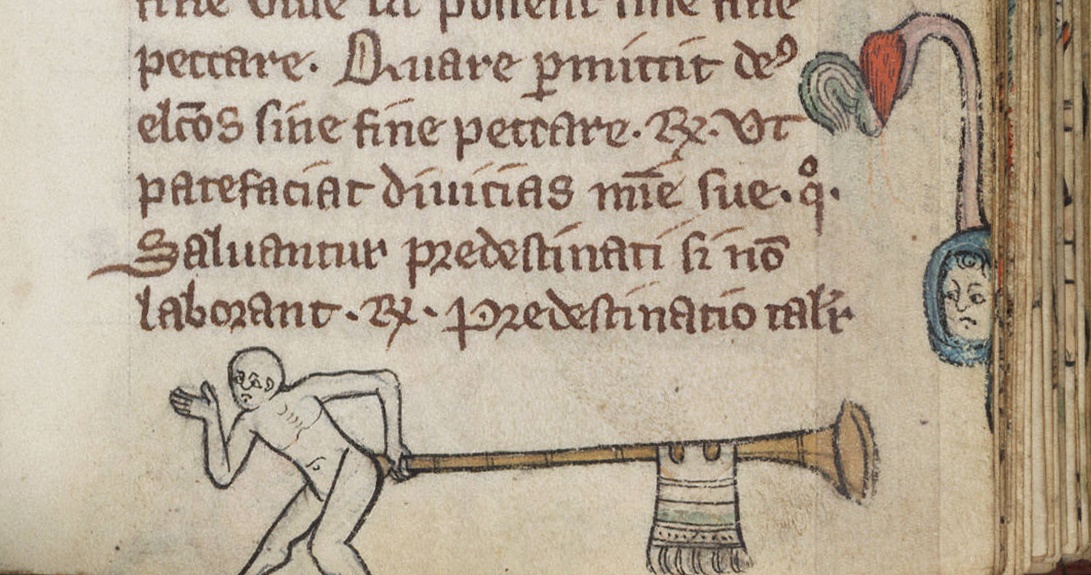 fine viue ut possent sine fine
peccare. Quare ꝑmittit deꝰ
elc̄os sine fine peccare. ℞. Vt
patefaciat diuicias mīe sue. qͦ.
Saluantur predestinati si nō
laborant. ℞. Predestinatio talr̄